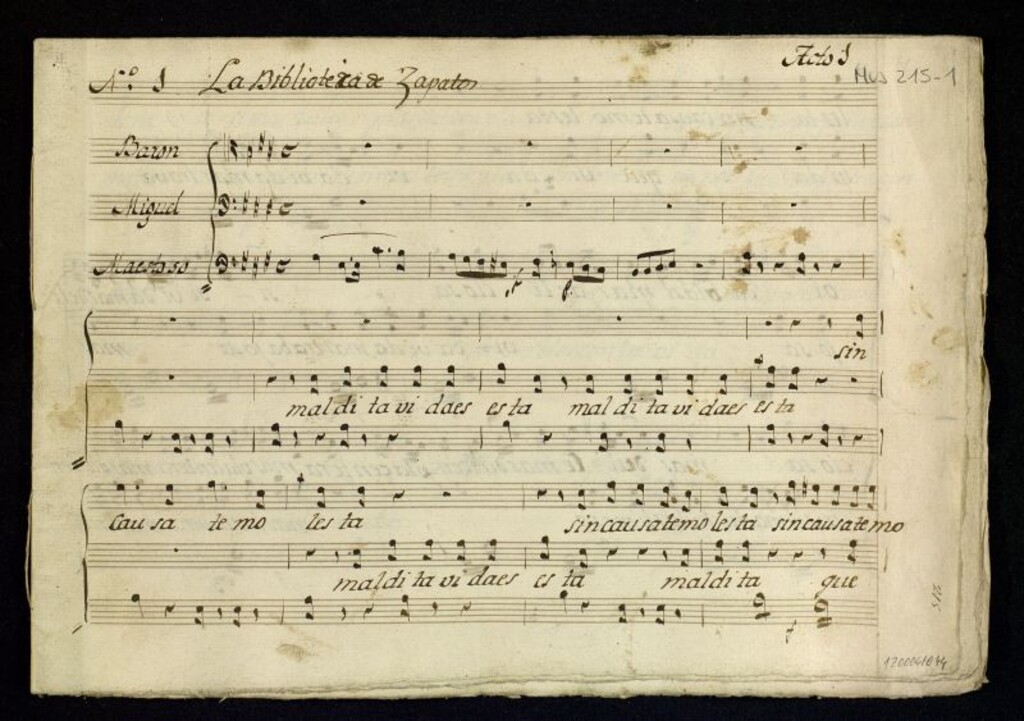 Acto 1
Mus 215-1
Nº 1 La Biblioteca de Zapatos
Baron
Miguel
Maestoso
sin
mal di ta vi daes es ta mal di ta vi daes es ta
cau sa te mo les ta sin causa te mo les ta sin causa te mo
mal di ta vi daes es ta mal di ta que
1200061044